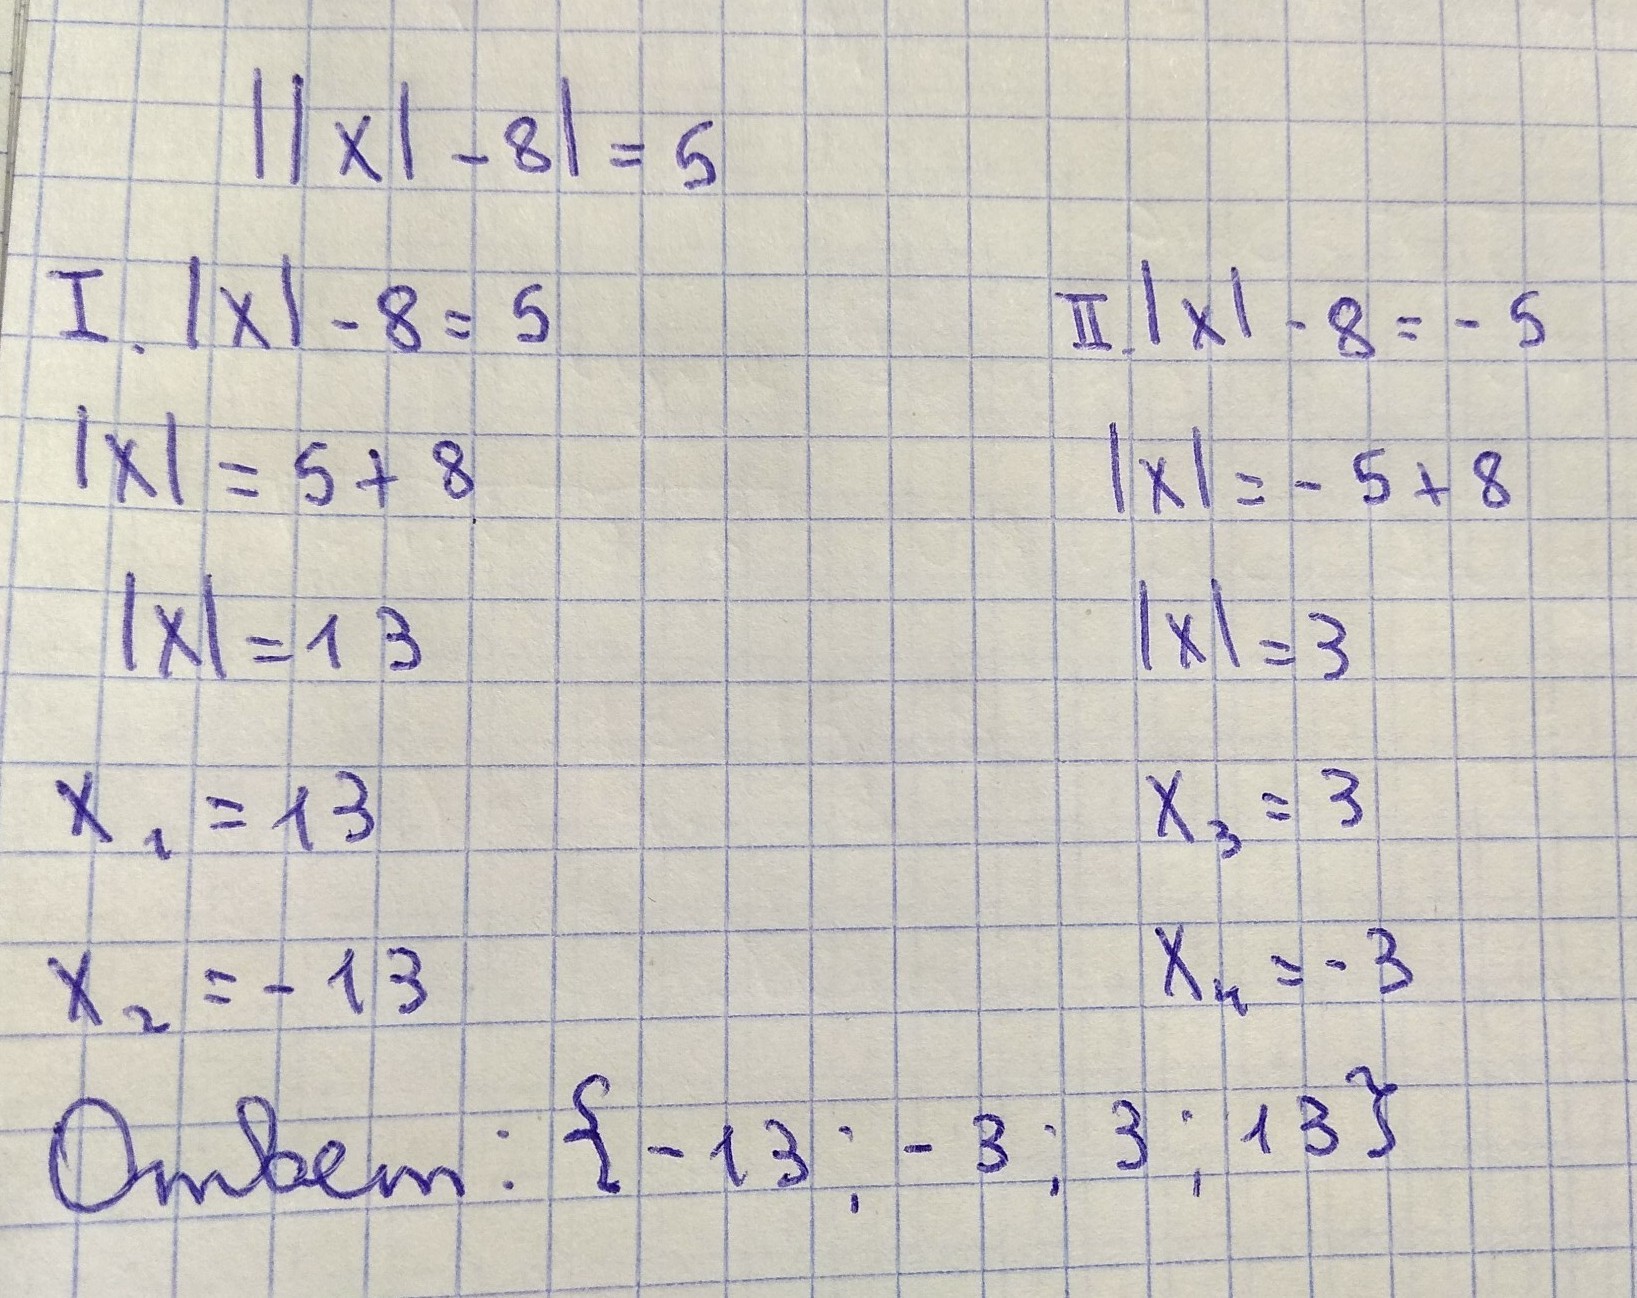 ||x| - 8| = 5
I. |x| - 8 = 5
|x| = 5 + 8
|x| = 13
x₁ = 13
x₂ = - 13
II. |x| - 8 = - 5
|x| = - 5 + 8
|x| = 3
x₃ = 3
x₄ = - 3
Ответ: {-13; -3; 3; 13}